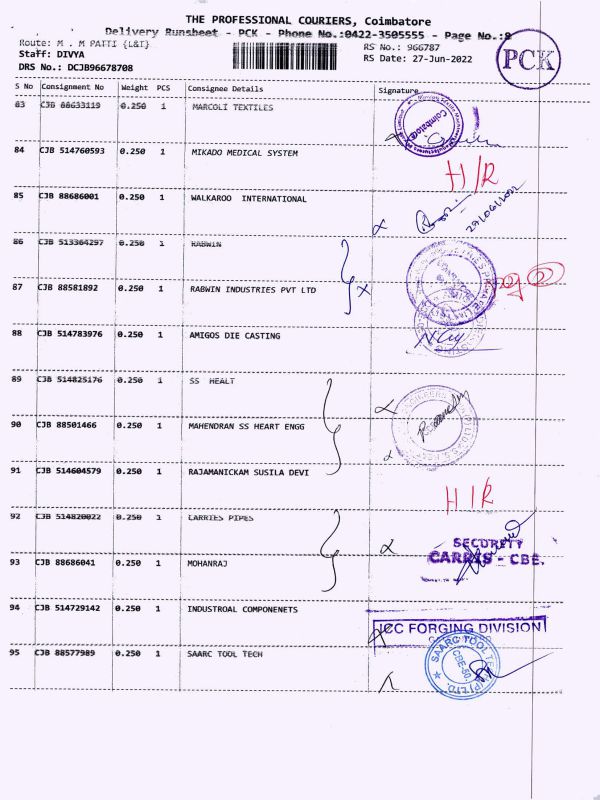 THE PROFESSIONAL COURIERS, Coimbatore
Delivery Runsheet - PCK - Phone No.:0422-3505555 - Page No.:8
Route: M . M PATTI {L&T}
RS No.: 966787
Staff: DIVYA
RS Date: 27-Jun-2022
DRS No.: DCJB96678708
PCK
S No Consignment No Weight PCS Consignee Details Signature
83 CJB 88633119 0.250 1 MARCOLI TEXTILES
Coimbatore
84 CJB 514760593 0.250 1 MIKADO MEDICAL SYSTEM
H/R
85 CJB 88686001 0.250 1 WALKAROO INTERNATIONAL
86 CJB 513364297 0.250 1 RABWIN
87 CJB 88581892 0.250 1 RABWIN INDUSTRIES PVT LTD
88 CJB 514783976 0.250 1 AMIGOS DIE CASTING
89 CJB 514825176 0.250 1 SS HEALT
90 CJB 88501466 0.250 1 MAHENDRAN SS HEART ENGG
91 CJB 514604579 0.250 1 RAJAMANICKAM SUSILA DEVI
H/R
92 CJB 514820022 0.250 1 LARRIES PIPES
SECURITY
CARRIS - CBE.
93 CJB 88686041 0.250 1 MOHANRAJ
94 CJB 514729142 0.250 1 INDUSTROAL COMPONENETS
ICC FORGING DIVISION
95 CJB 88577989 0.250 1 SAARC TOOL TECH
SAARC TOOL TECH (P) LTD.
CBE-50.